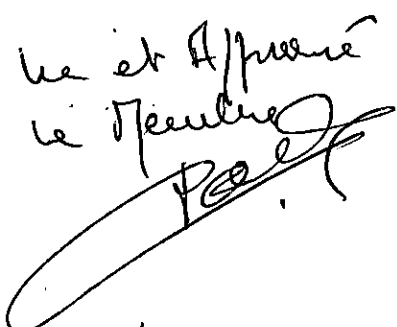 Vu et Approuvé
Le Membre